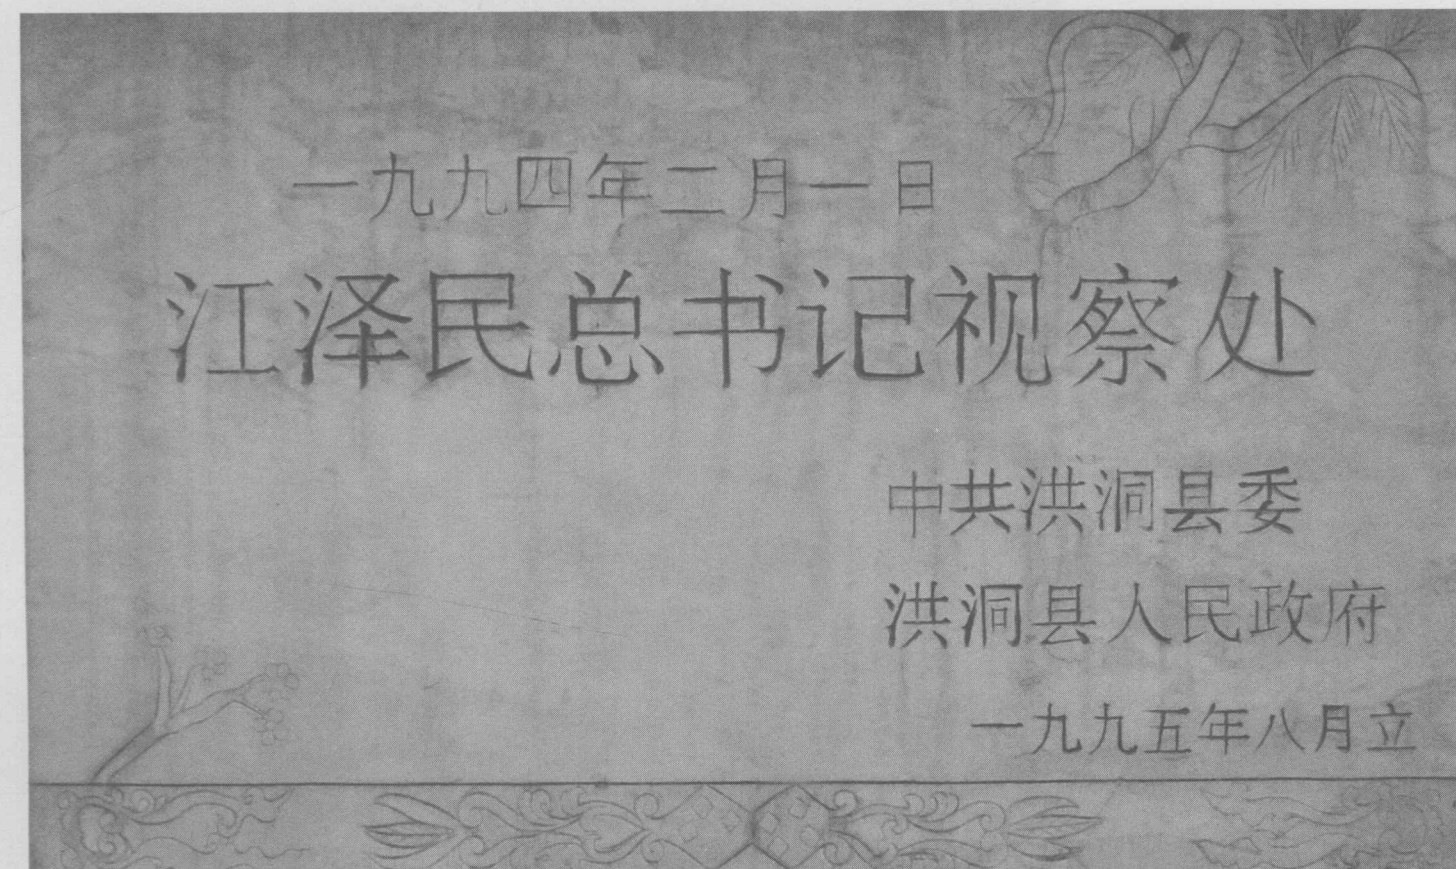 一九九四年二月一日
江泽民总书记视察处
中共洪洞县委
洪洞县人民政府
一九九五年八月立